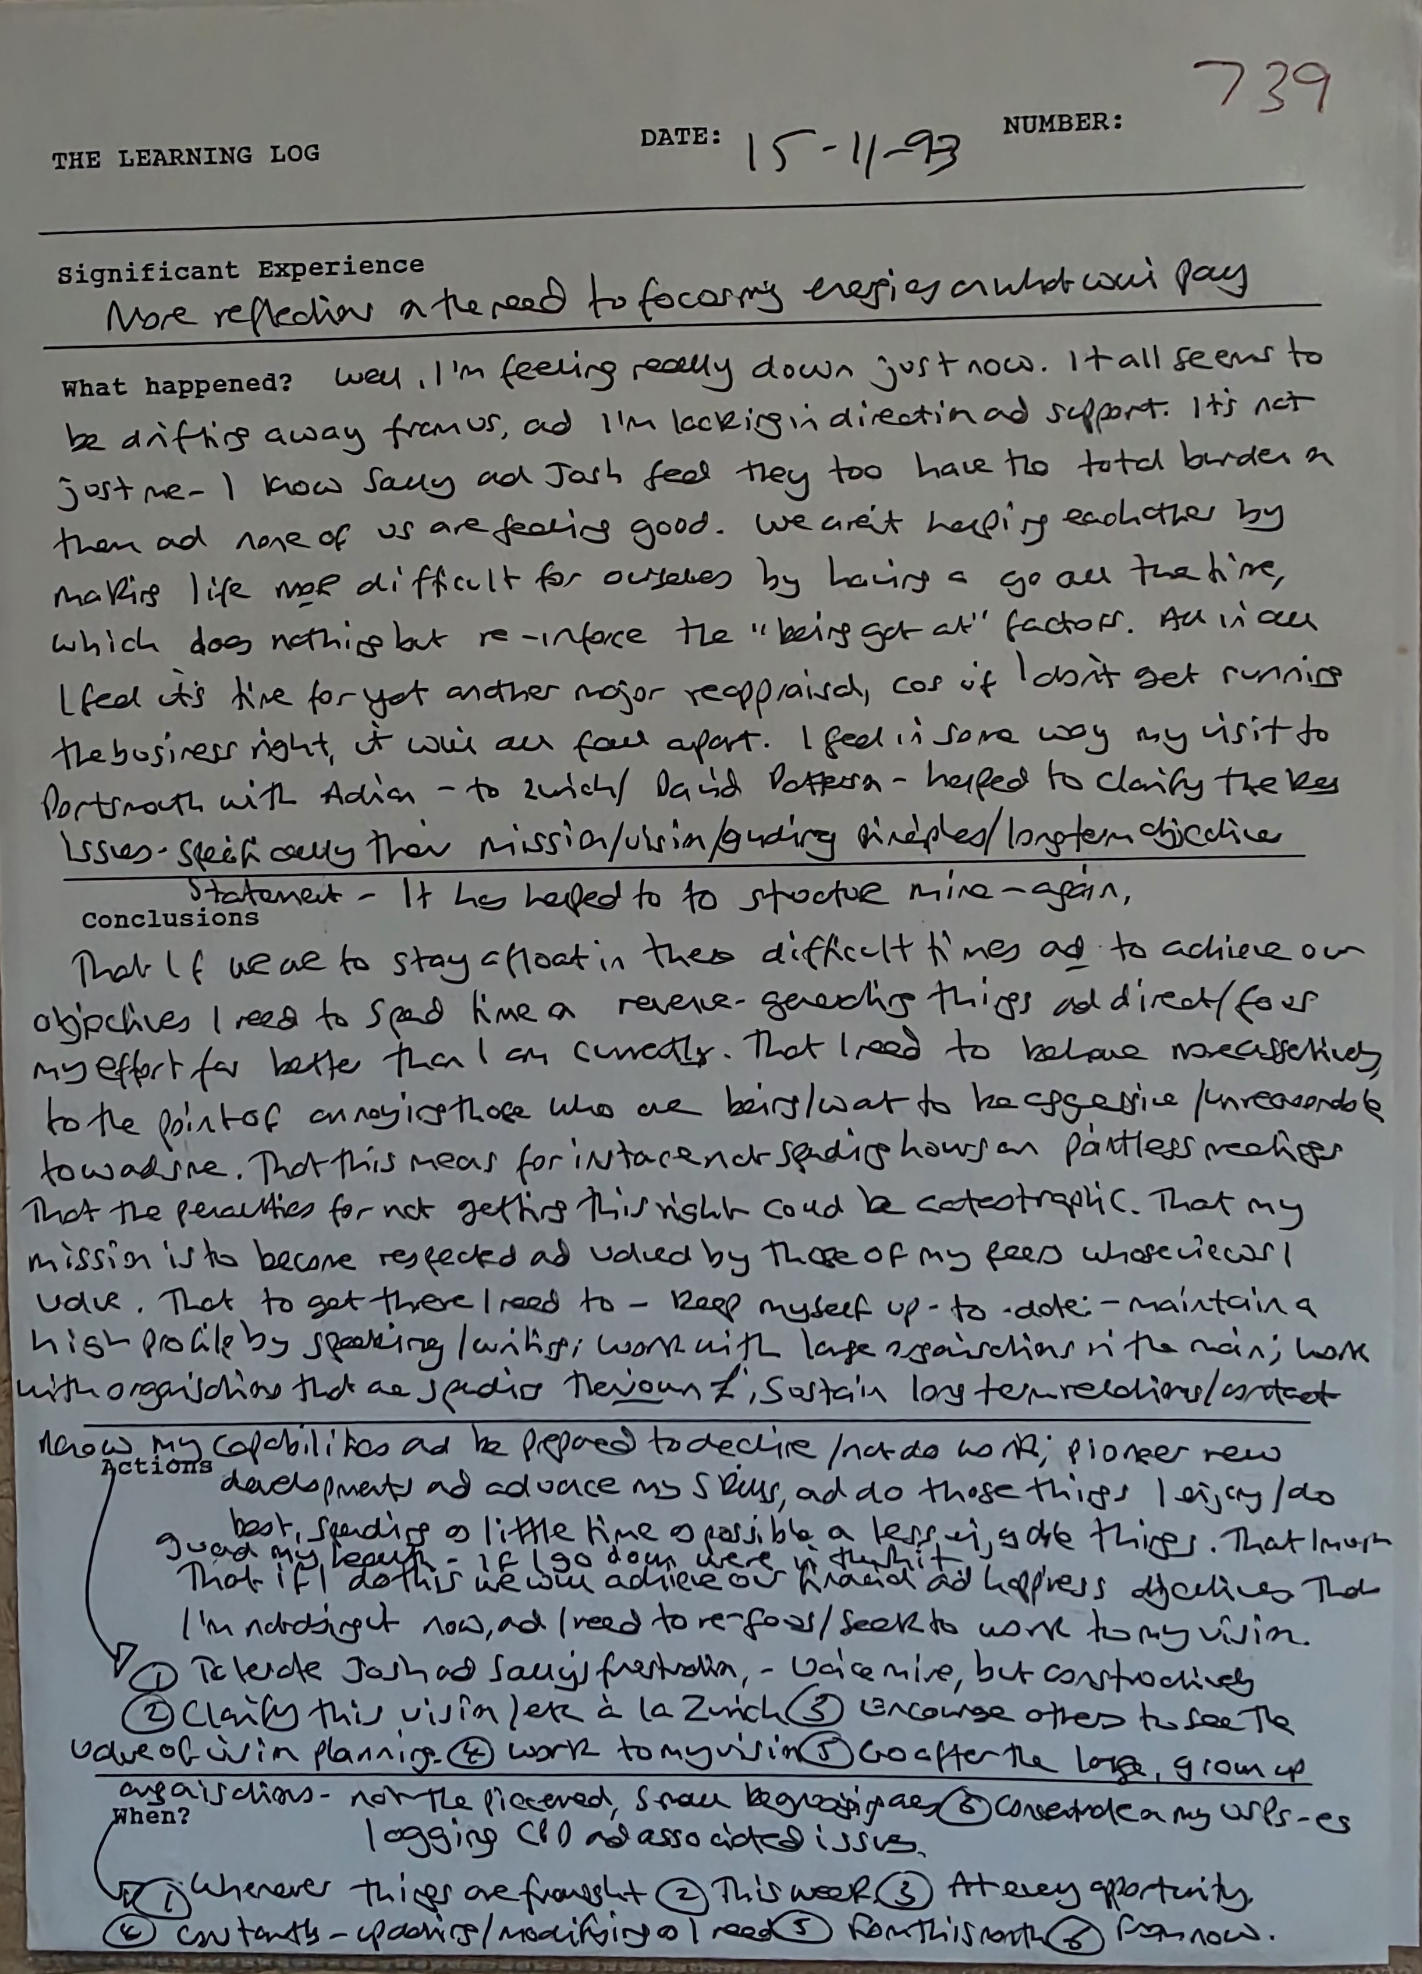 739
THE LEARNING LOG DATE: 15-11-93 NUMBER:
Significant Experience
More reflections on the need to focus my energies on what will pay
What happened? Well, I'm feeling really down just now. It all seems to
be drifting away from us, and I'm lacking in direction and support. It's not
just me - I know Sally and Josh feel they too have the total burden on
them and none of us are feeling good. We aren't helping each other by
making life more difficult for ourselves by having a go all the time,
which does nothing but re-inforce the "being got at" factors. All in all
I feel it's time for yet another major reappraisal, cos if I don't get running
the business right, it will all fall apart. I feel in some way my visit to
Portsmouth with Adrian - to Zurich/ David - helped to clarify the key
issues - specifically their mission/vision/guiding principles/longterm objectives
statement - It has helped to to structure mine - again,
Conclusions
That If we are to stay afloat in these difficult times and to achieve our
objectives I need to spend time on revenue-generating things and direct/focus
my effort far better than I am currently. That I need to behave more assertively,
to the point of annoying those who are being/want to be aggressive/unreasonable
towards me. That this means for instance not spending hours on pointless meetings
That the penalties for not getting this right could be catastrophic. That my
mission is to become respected and valued by those of my peers whose views I
value. That to get there I need to - keep myself up-to-date: - maintain a
high profile by speaking/writing; work with large organisations in the main; work
with organisations that are spending their own £; sustain long term relations/contact
know my capabilities and be prepared to decline/not do work; pioneer new
Actions
developments and advance my skills, and do those things I enjoy/do
best, spending as little time as possible on less enjoyable things. That I must
guard my health - if I go down were in the shit.
That if I do this we will achieve our financial and happiness objectives That
I'm not doing it now, and I need to re-focus/seek to work to my vision.
① Tolerate Josh and Sally's frustration, - voice mine, but constructively
② Clarify this vision/etc à la Zurich ③ Encourage others to see the
value of vision planning. ④ Work to my vision ⑤ Go after the large, grown up
organisations - not the small ⑥ Concentrate on my USPs - eg
When?
logging CPD and associated issues.
① Whenever things are fraught ② This week ③ At every opportunity
④ Constantly - updating/modifying as I need ⑤ From this month ⑥ From now.